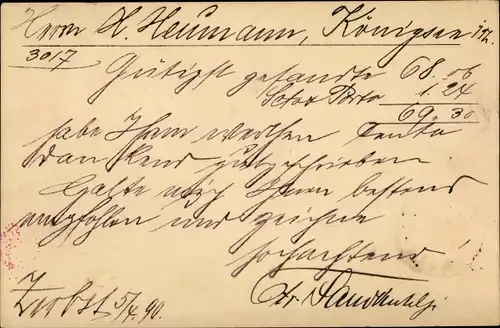 Herrn H. Heumann, Königsee i/Th.
3017
Gütigst gesandte 68.06
Porto 1.24
69.30
habe Ihrem werthen Conto
dankend gutgeschrieben
Halte mich Ihnen bestens
empfohlen und zeichne
hochachtend
Zerbst 5/4. 90.